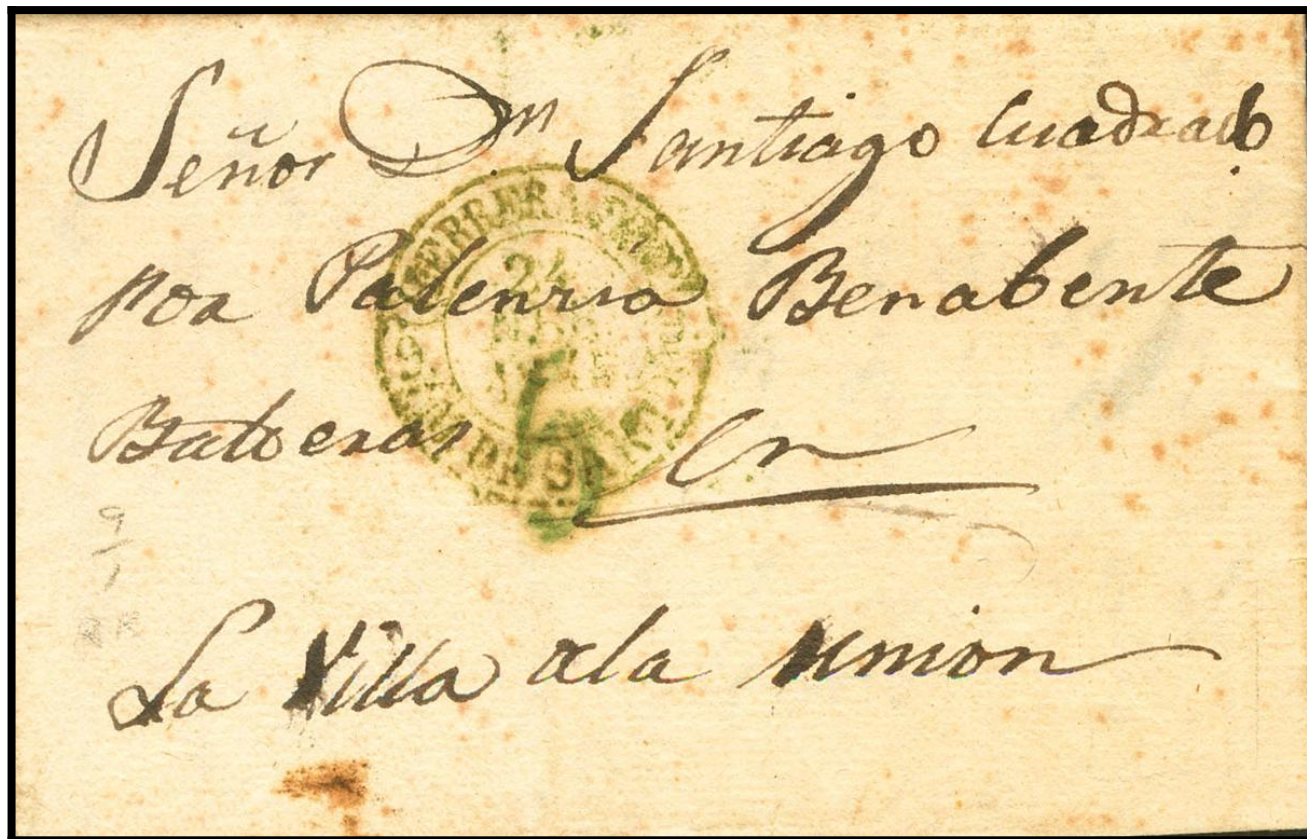 Señor Dn Santiago Cuadrado
por Palencia Benabente
24
5
en
La Villa de la Union